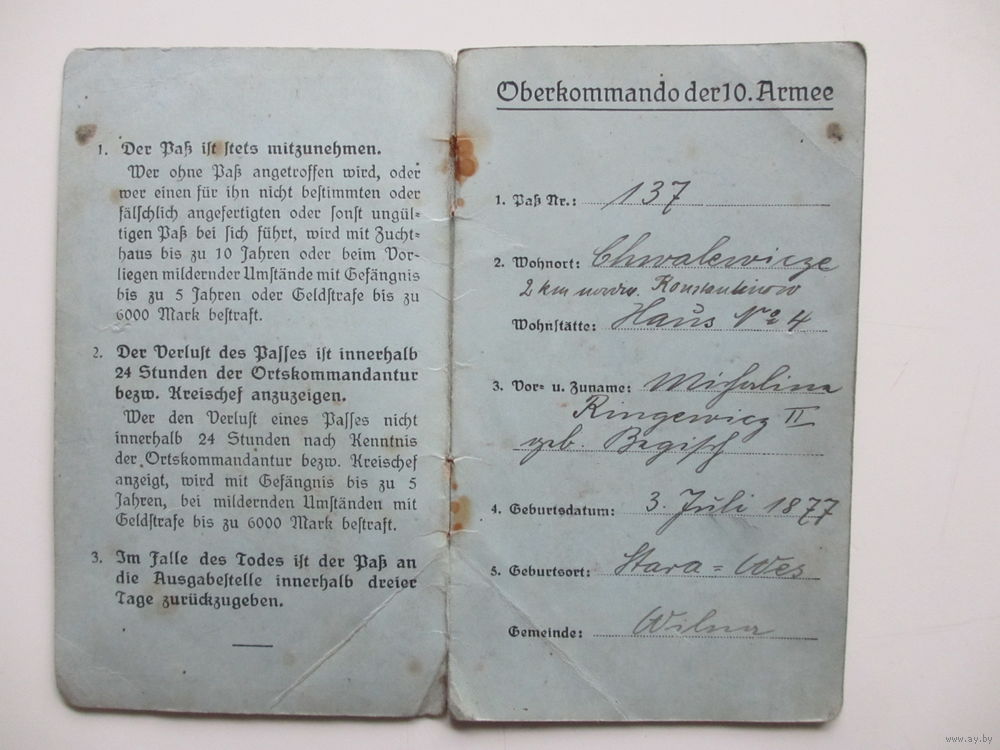 1. Der Paß ist stets mitzunehmen.
Wer ohne Paß angetroffen wird, oder
wer einen für ihn nicht bestimmten oder
fälschlich angefertigten oder sonst ungül-
tigen Paß bei sich führt, wird mit Zucht-
haus bis zu 10 Jahren oder beim Vor-
liegen mildernder Umstände mit Gefängnis
bis zu 5 Jahren oder Geldstrafe bis zu
6000 Mark bestraft.
2. Der Verlust des Passes ist innerhalb
24 Stunden der Ortskommandantur
bezw. Kreischef anzuzeigen.
Wer den Verlust eines Passes nicht
innerhalb 24 Stunden nach Kenntnis
der Ortskommandantur bezw. Kreischef
anzeigt, wird mit Gefängnis bis zu 5
Jahren, bei mildernden Umständen mit
Geldstrafe bis zu 6000 Mark bestraft.
3. Im Falle des Todes ist der Paß an
die Ausgabestelle innerhalb dreier
Tage zurückzugeben.
Oberkommando der 10. Armee
1. Paß Nr.: 137
2. Wohnort: Chwalewicze
2 km nordw. Konstantinow
Wohnstätte: Haus No 4
3. Vor- u. Zuname: Michalina
Ringewicz II
geb.
4. Geburtsdatum: 3. Juli 1877
5. Geburtsort: Stara-Wes
Gemeinde: Wilna
www.ay.by